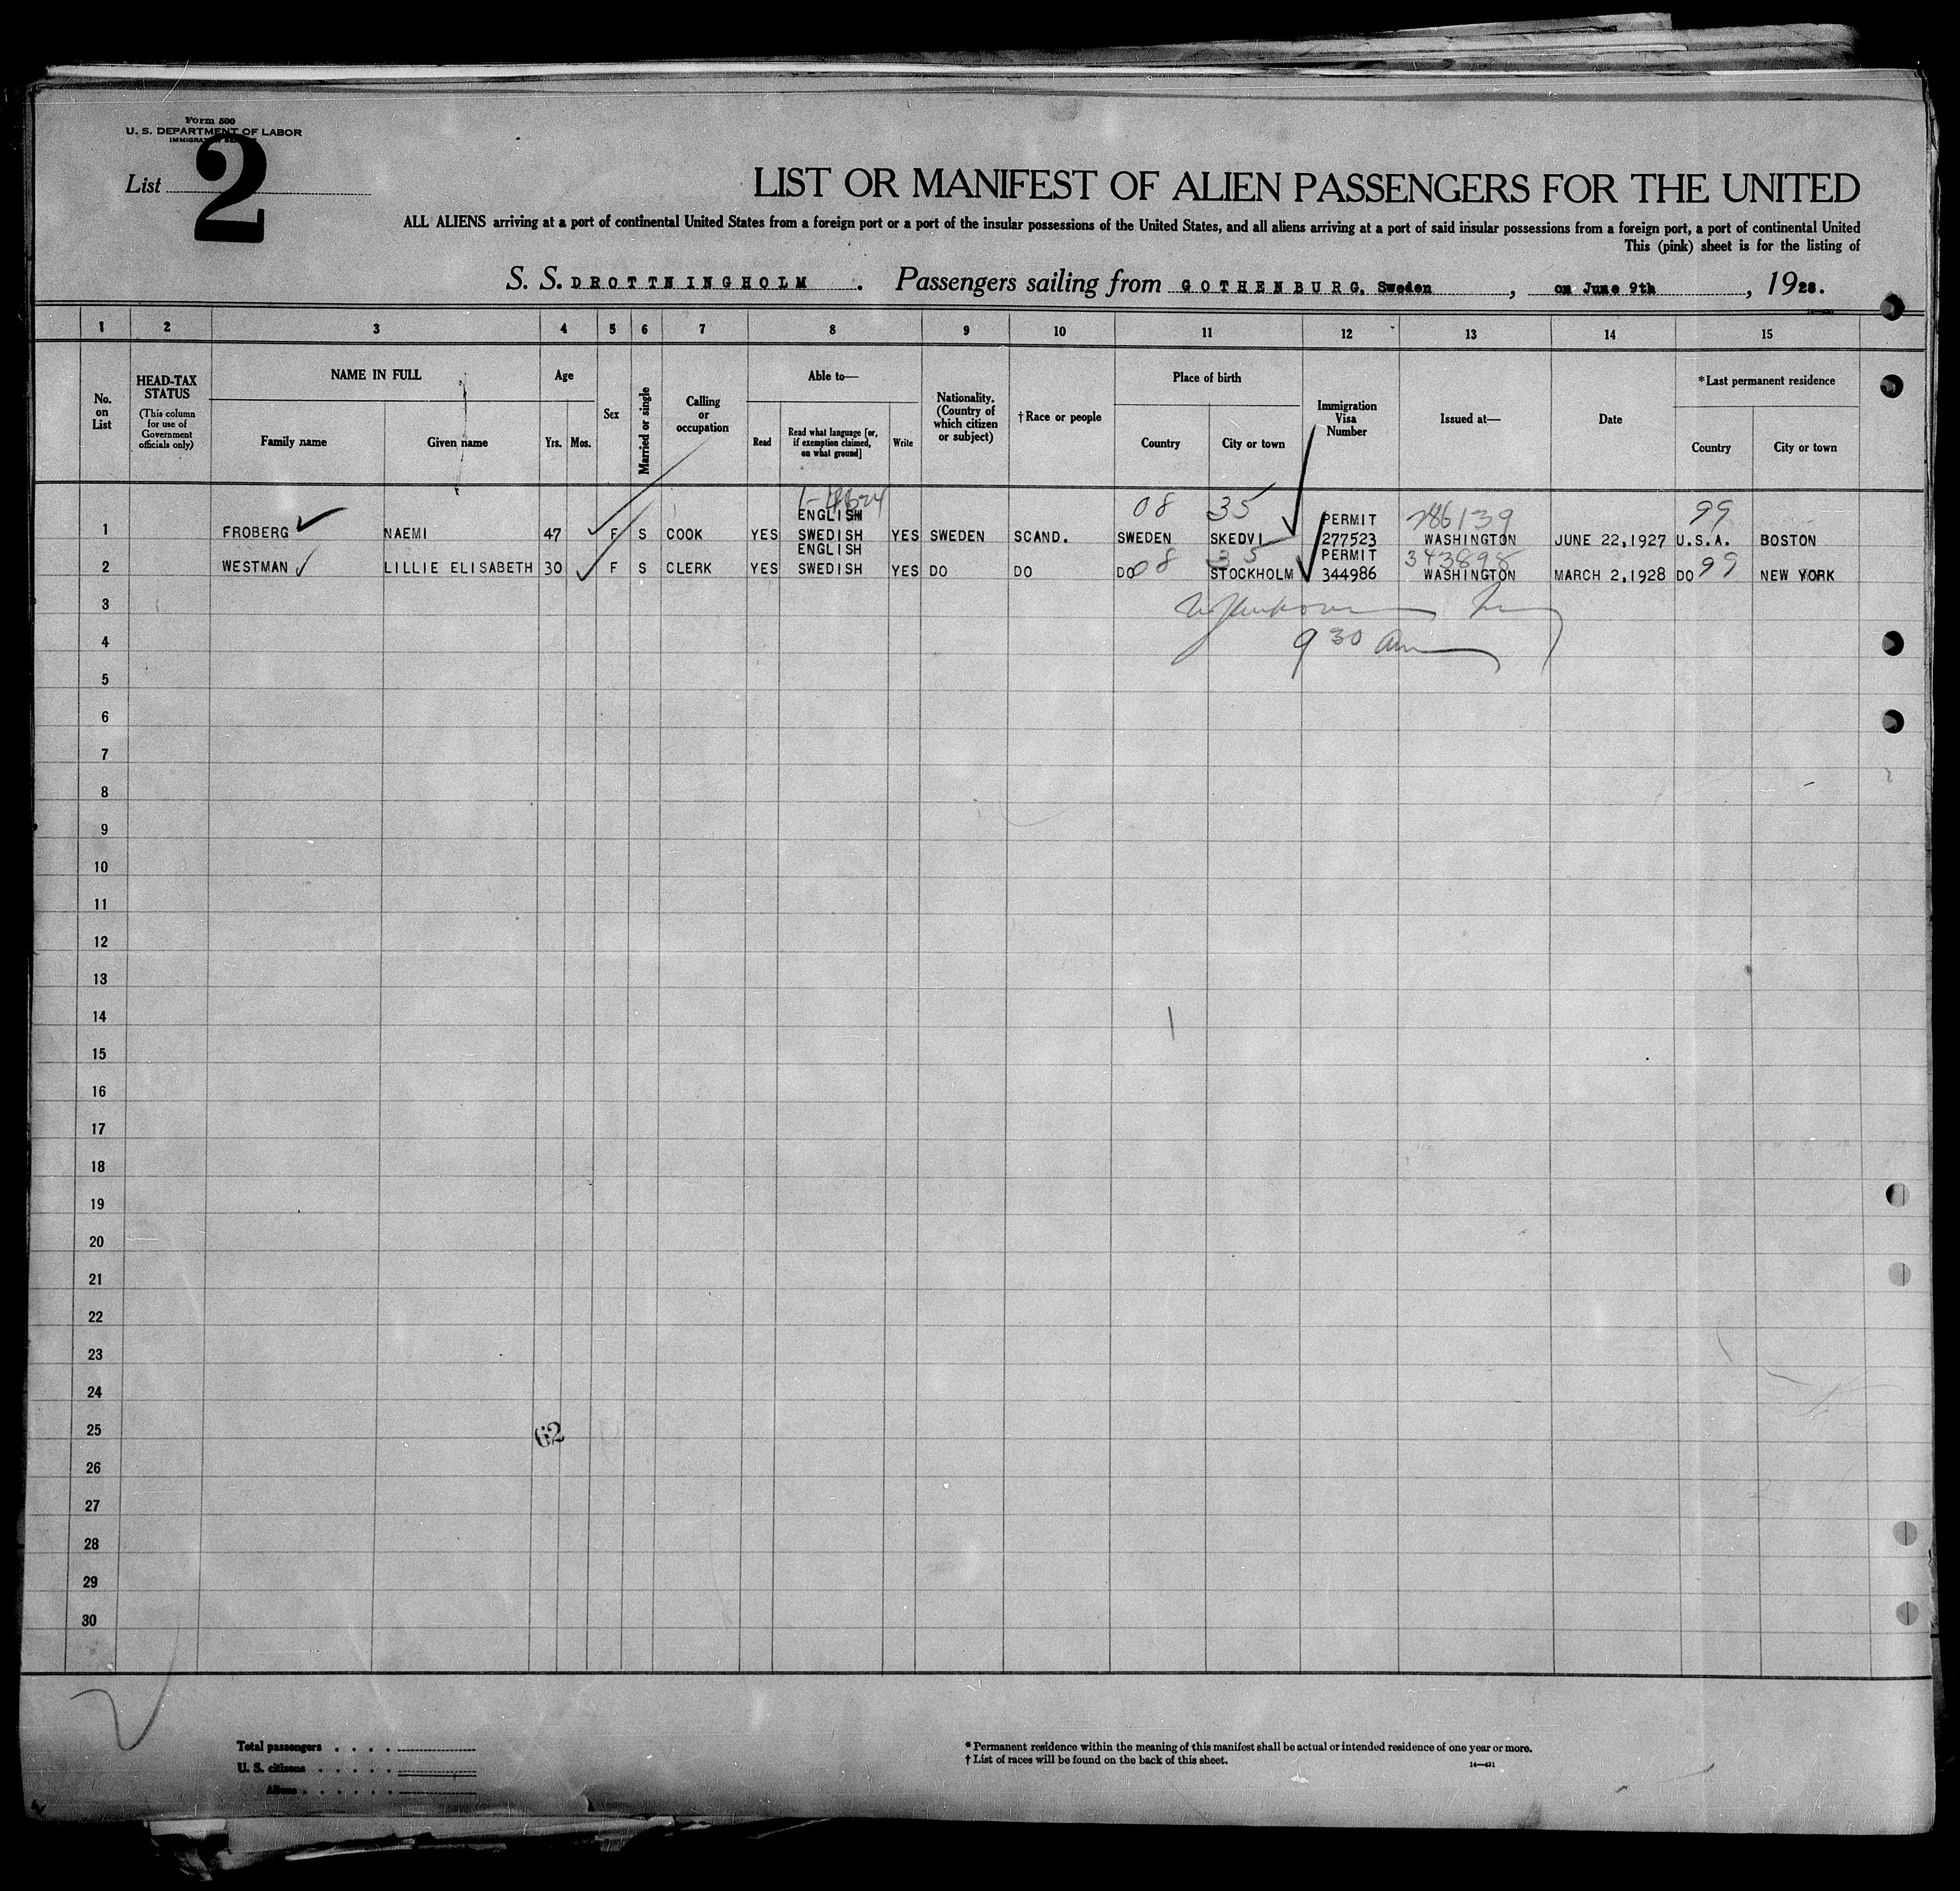 Form 500
U. S. DEPARTMENT OF LABOR
List 2
LIST OR MANIFEST OF ALIEN PASSENGERS FOR THE UNITED
ALL ALIENS arriving at a port of continental United States from a foreign port or a port of the insular possessions of the United States, and all aliens arriving at a port of said insular possessions from a foreign port, a port of continental United
This (pink) sheet is for the listing of
S. S. DROTTNINGHOLM . Passengers sailing from GOTHENBURG, Sweden , on June 9th , 1928.
1 2 3 4 5 6 7 8 9 10 11 12 13 14 15
No. on List
HEAD-TAX STATUS
(This column for use of Government officials only)
NAME IN FULL
Family name Given name
Age
Yrs. Mos.
Sex
Married or single
Calling or occupation
Able to—
Read
Read what language [or, if exemption claimed, on what ground]
Write
Nationality. (Country of which citizen or subject)
†Race or people
Place of birth
Country City or town
Immigration Visa Number
Issued at—
Date
*Last permanent residence
Country City or town
08 35 99
ENGLISH PERMIT 286139
1 FROBERG NAEMI 47 F S COOK YES SWEDISH YES SWEDEN SCAND. SWEDEN SKEDVI 277523 WASHINGTON JUNE 22,1927 U.S.A. BOSTON
ENGLISH 08 35 PERMIT 343898 99
2 WESTMAN LILLIE ELISABETH 30 F S CLERK YES SWEDISH YES DO DO DO STOCKHOLM 344986 WASHINGTON MARCH 2,1928 DO NEW YORK
3
4 9 30 am
5
6
7
8
9
10
11
12
13
14
15
16
17
18
19
20
21
22
23
24
25 62
26
27
28
29
30
Total passengers . . . .
U. S. citizens . . . . .
Aliens . . . . . .
* Permanent residence within the meaning of this manifest shall be actual or intended residence of one year or more.
† List of races will be found on the back of this sheet.